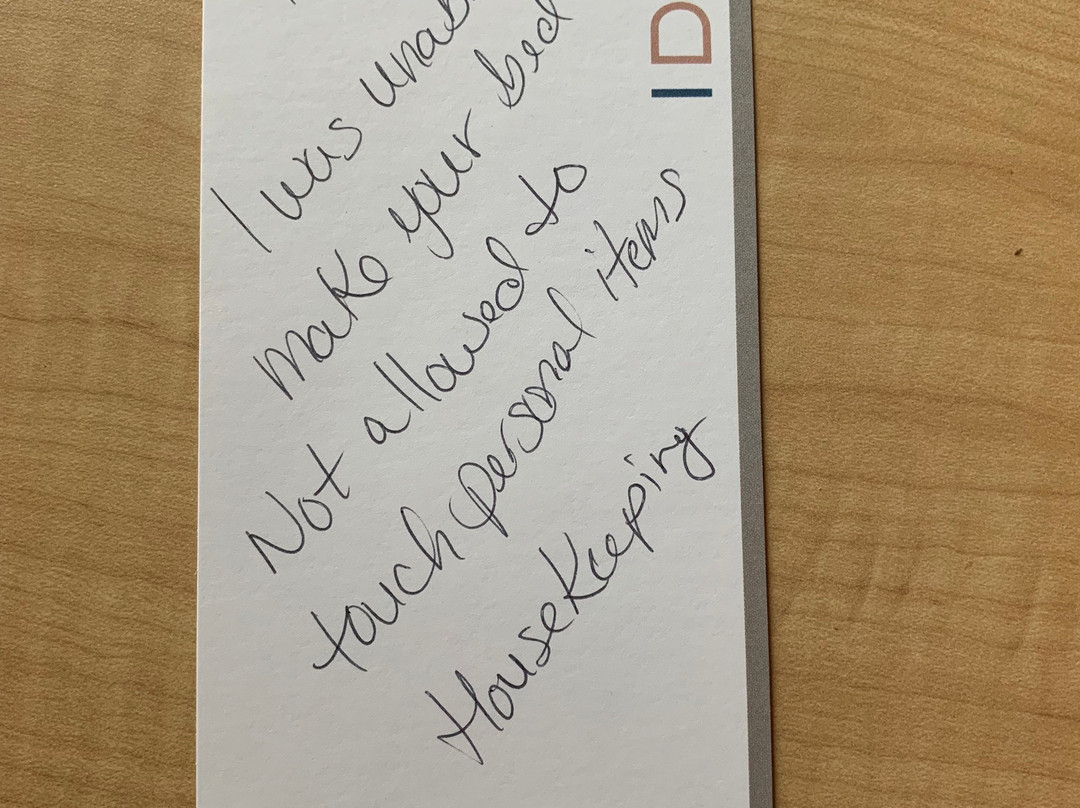 I was unab
make your bed
Not allowed to
touch personal items
HouseKeeping
ID